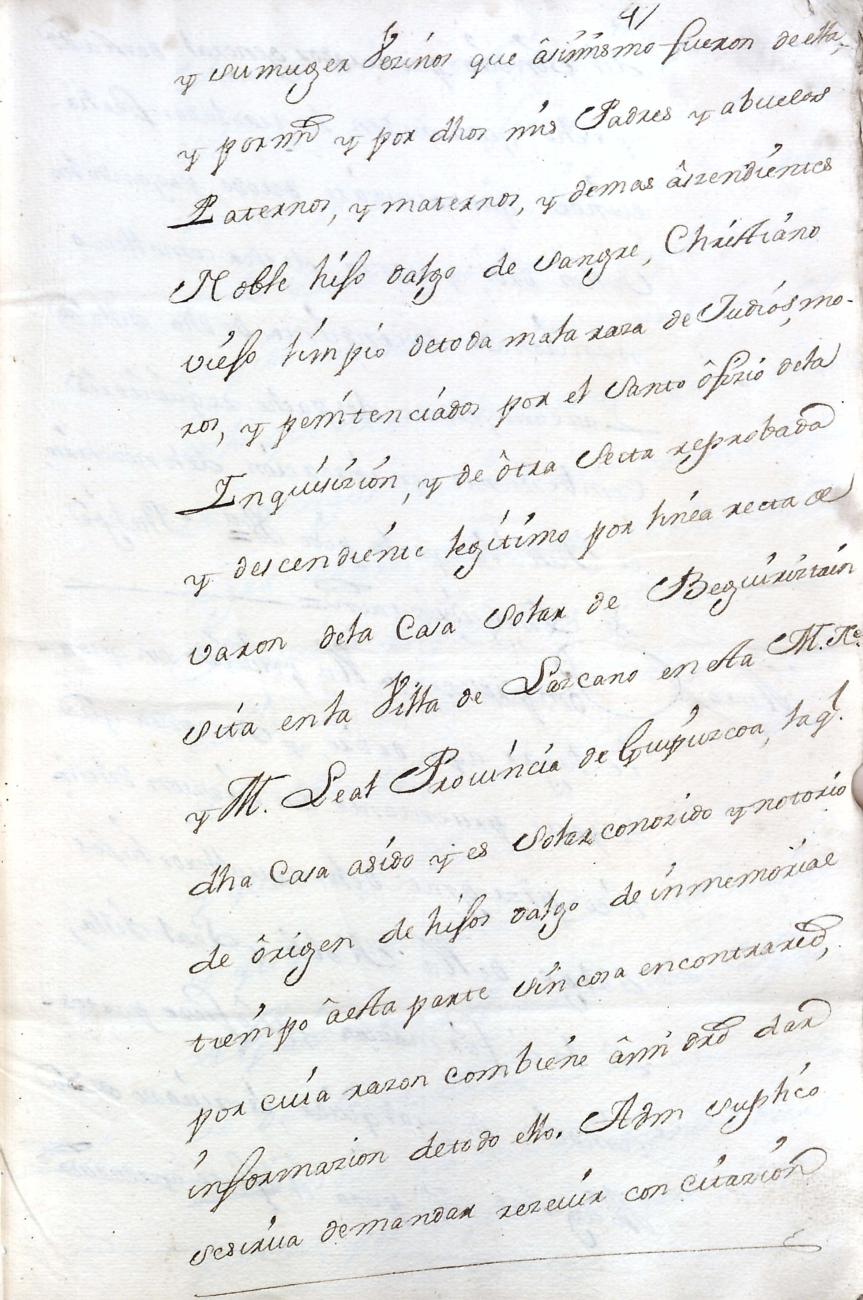 4/
y su muger Vezinos que âsimismo fueron de ella,
y por mi y por dhos mis Padres y abuelos
Paternos, y maternos, y demas âszendientes
Noble hijo dalgo de sangre, Christiano
viejo limpio de toda mala raza de Judios, mo-
ros, y penitenciados por el Santo ôfizio dela
Inquisizion, y de ôtra Secta reprobada
y descendiente legitimo por linea recta de
varon dela Casa Solar de Beguiriztain
sita en la Villa de Lazcano en esta M. Ne.
y M. Leal Provincia de Guipuzcoa, la ql.
dha Casa a sido y es Solar conozido y notorio
de ôrigen de hijos dalgo de inmemorial
tiempo âesta parte sin cosa en contrario,
por cuia razon combiene âmi dro dar
informazion de todo ello. A Vm suplico
se sirva de mandar rezevir con citazion